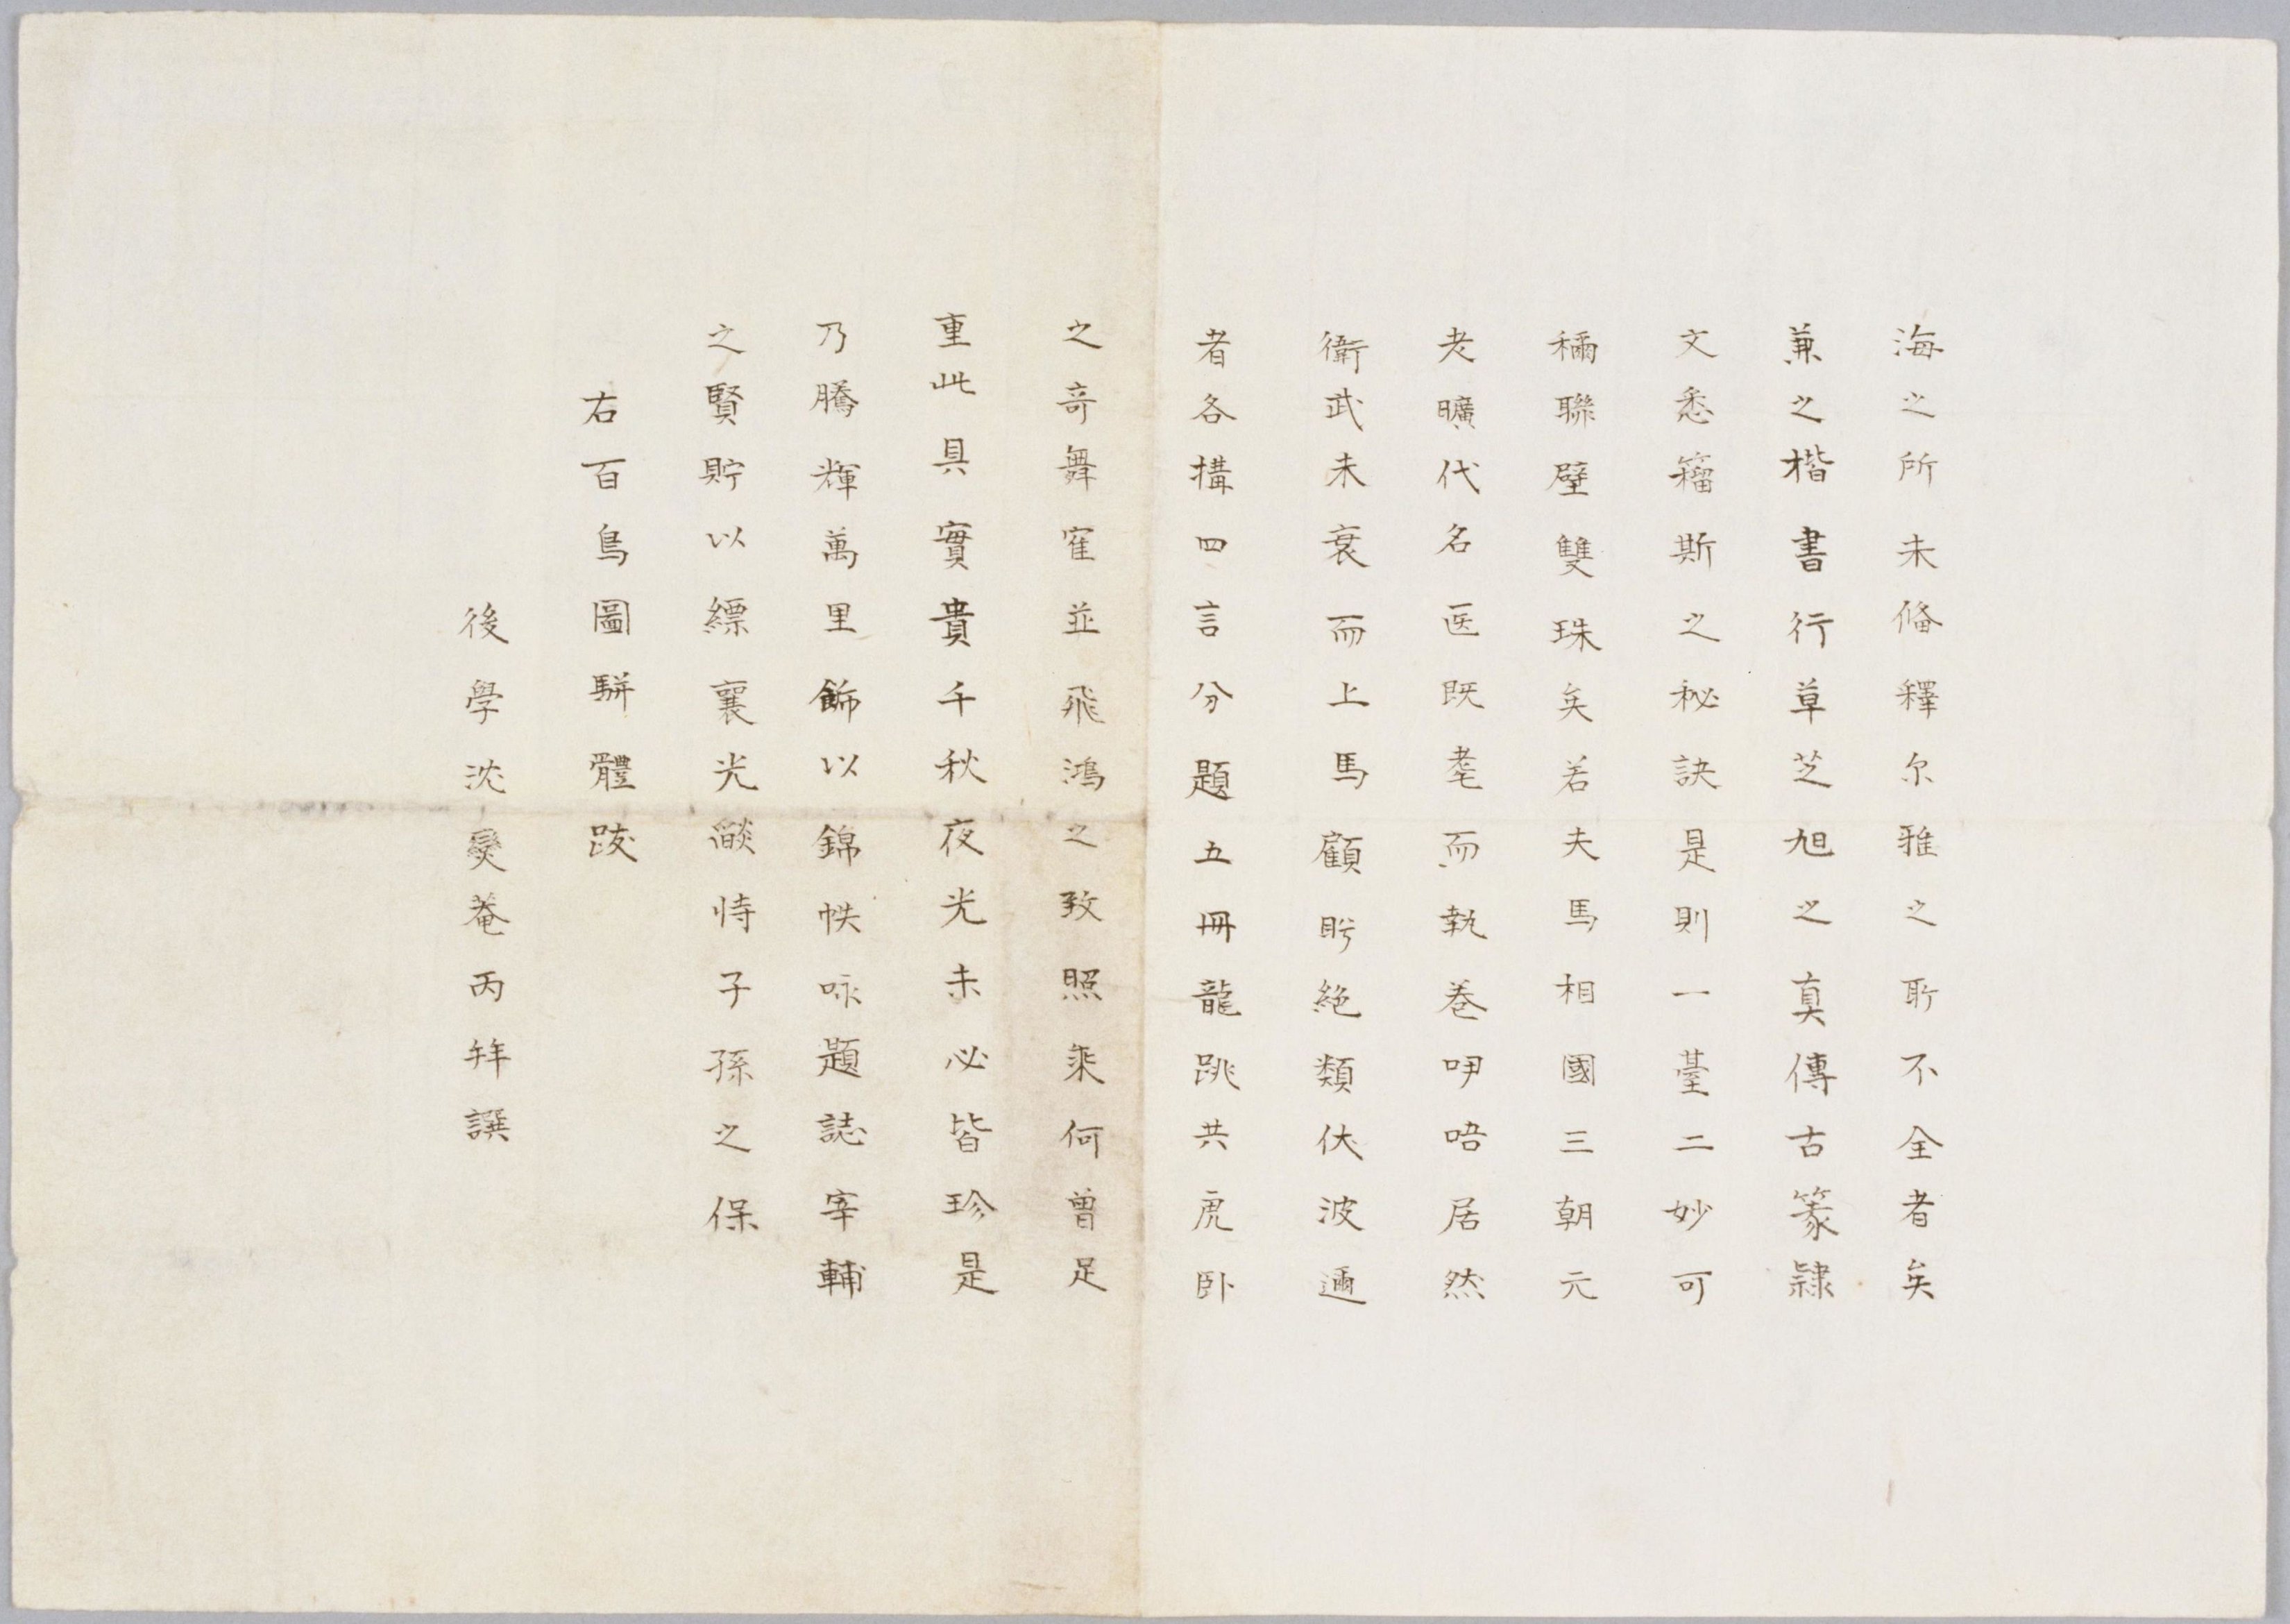 海之所未脩釋尔雅之所不全者矣
兼之楷書行草芝旭之真傳古篆隸
文悉籀斯之秘訣是則一臺二妙可
稱聯璧雙珠矣若夫馬相國三朝元
老曠代名医既耄而執卷呷唔居然
衛武未衰而上馬顧盻絶類伏波邇
者各搆四言分題五冊龍跳共虎卧
之竒舞隺並飛鴻之致照乘何曽足
重此具實貴千秋夜光未必皆珍是
乃騰輝萬里飾以錦帙咏題誌宰輔
之賢貯以縹囊光燄恃子孫之保
右百鳥圖駢體跋
後學沈燮菴丙拜譔